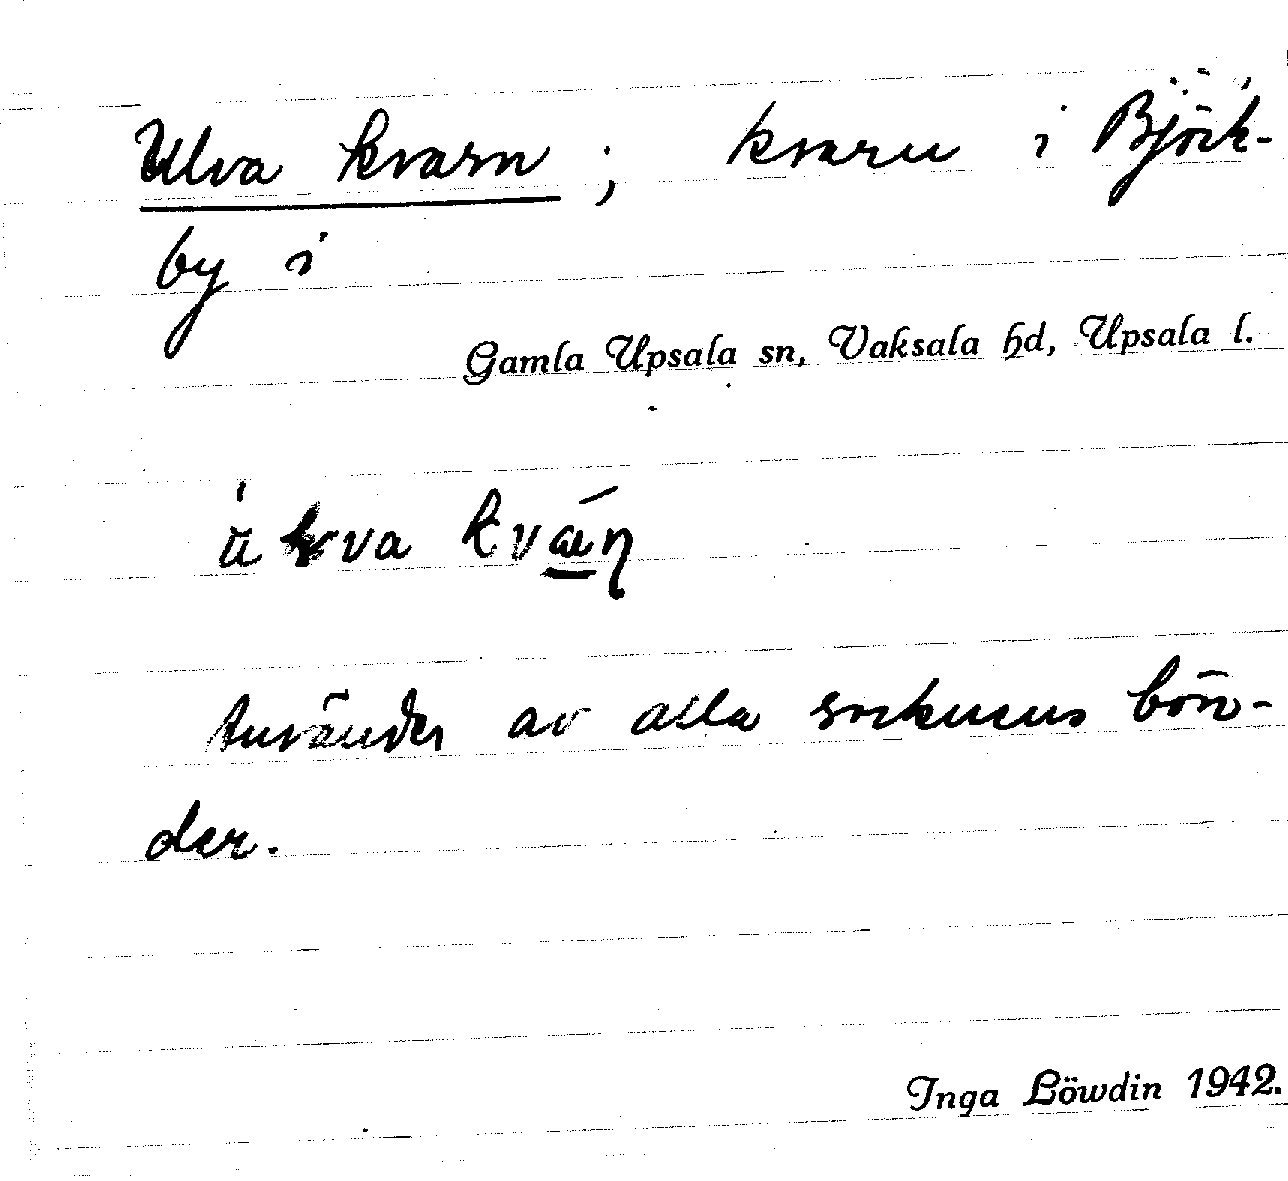 Ulva kvarn ; kvarn i Björk-
by i
Gamla Upsala sn, Vaksala hd, Upsala l.
kvǽ̱ɳ
Användes av alla socknens bön-
der.
Inga Löwdin 1942.